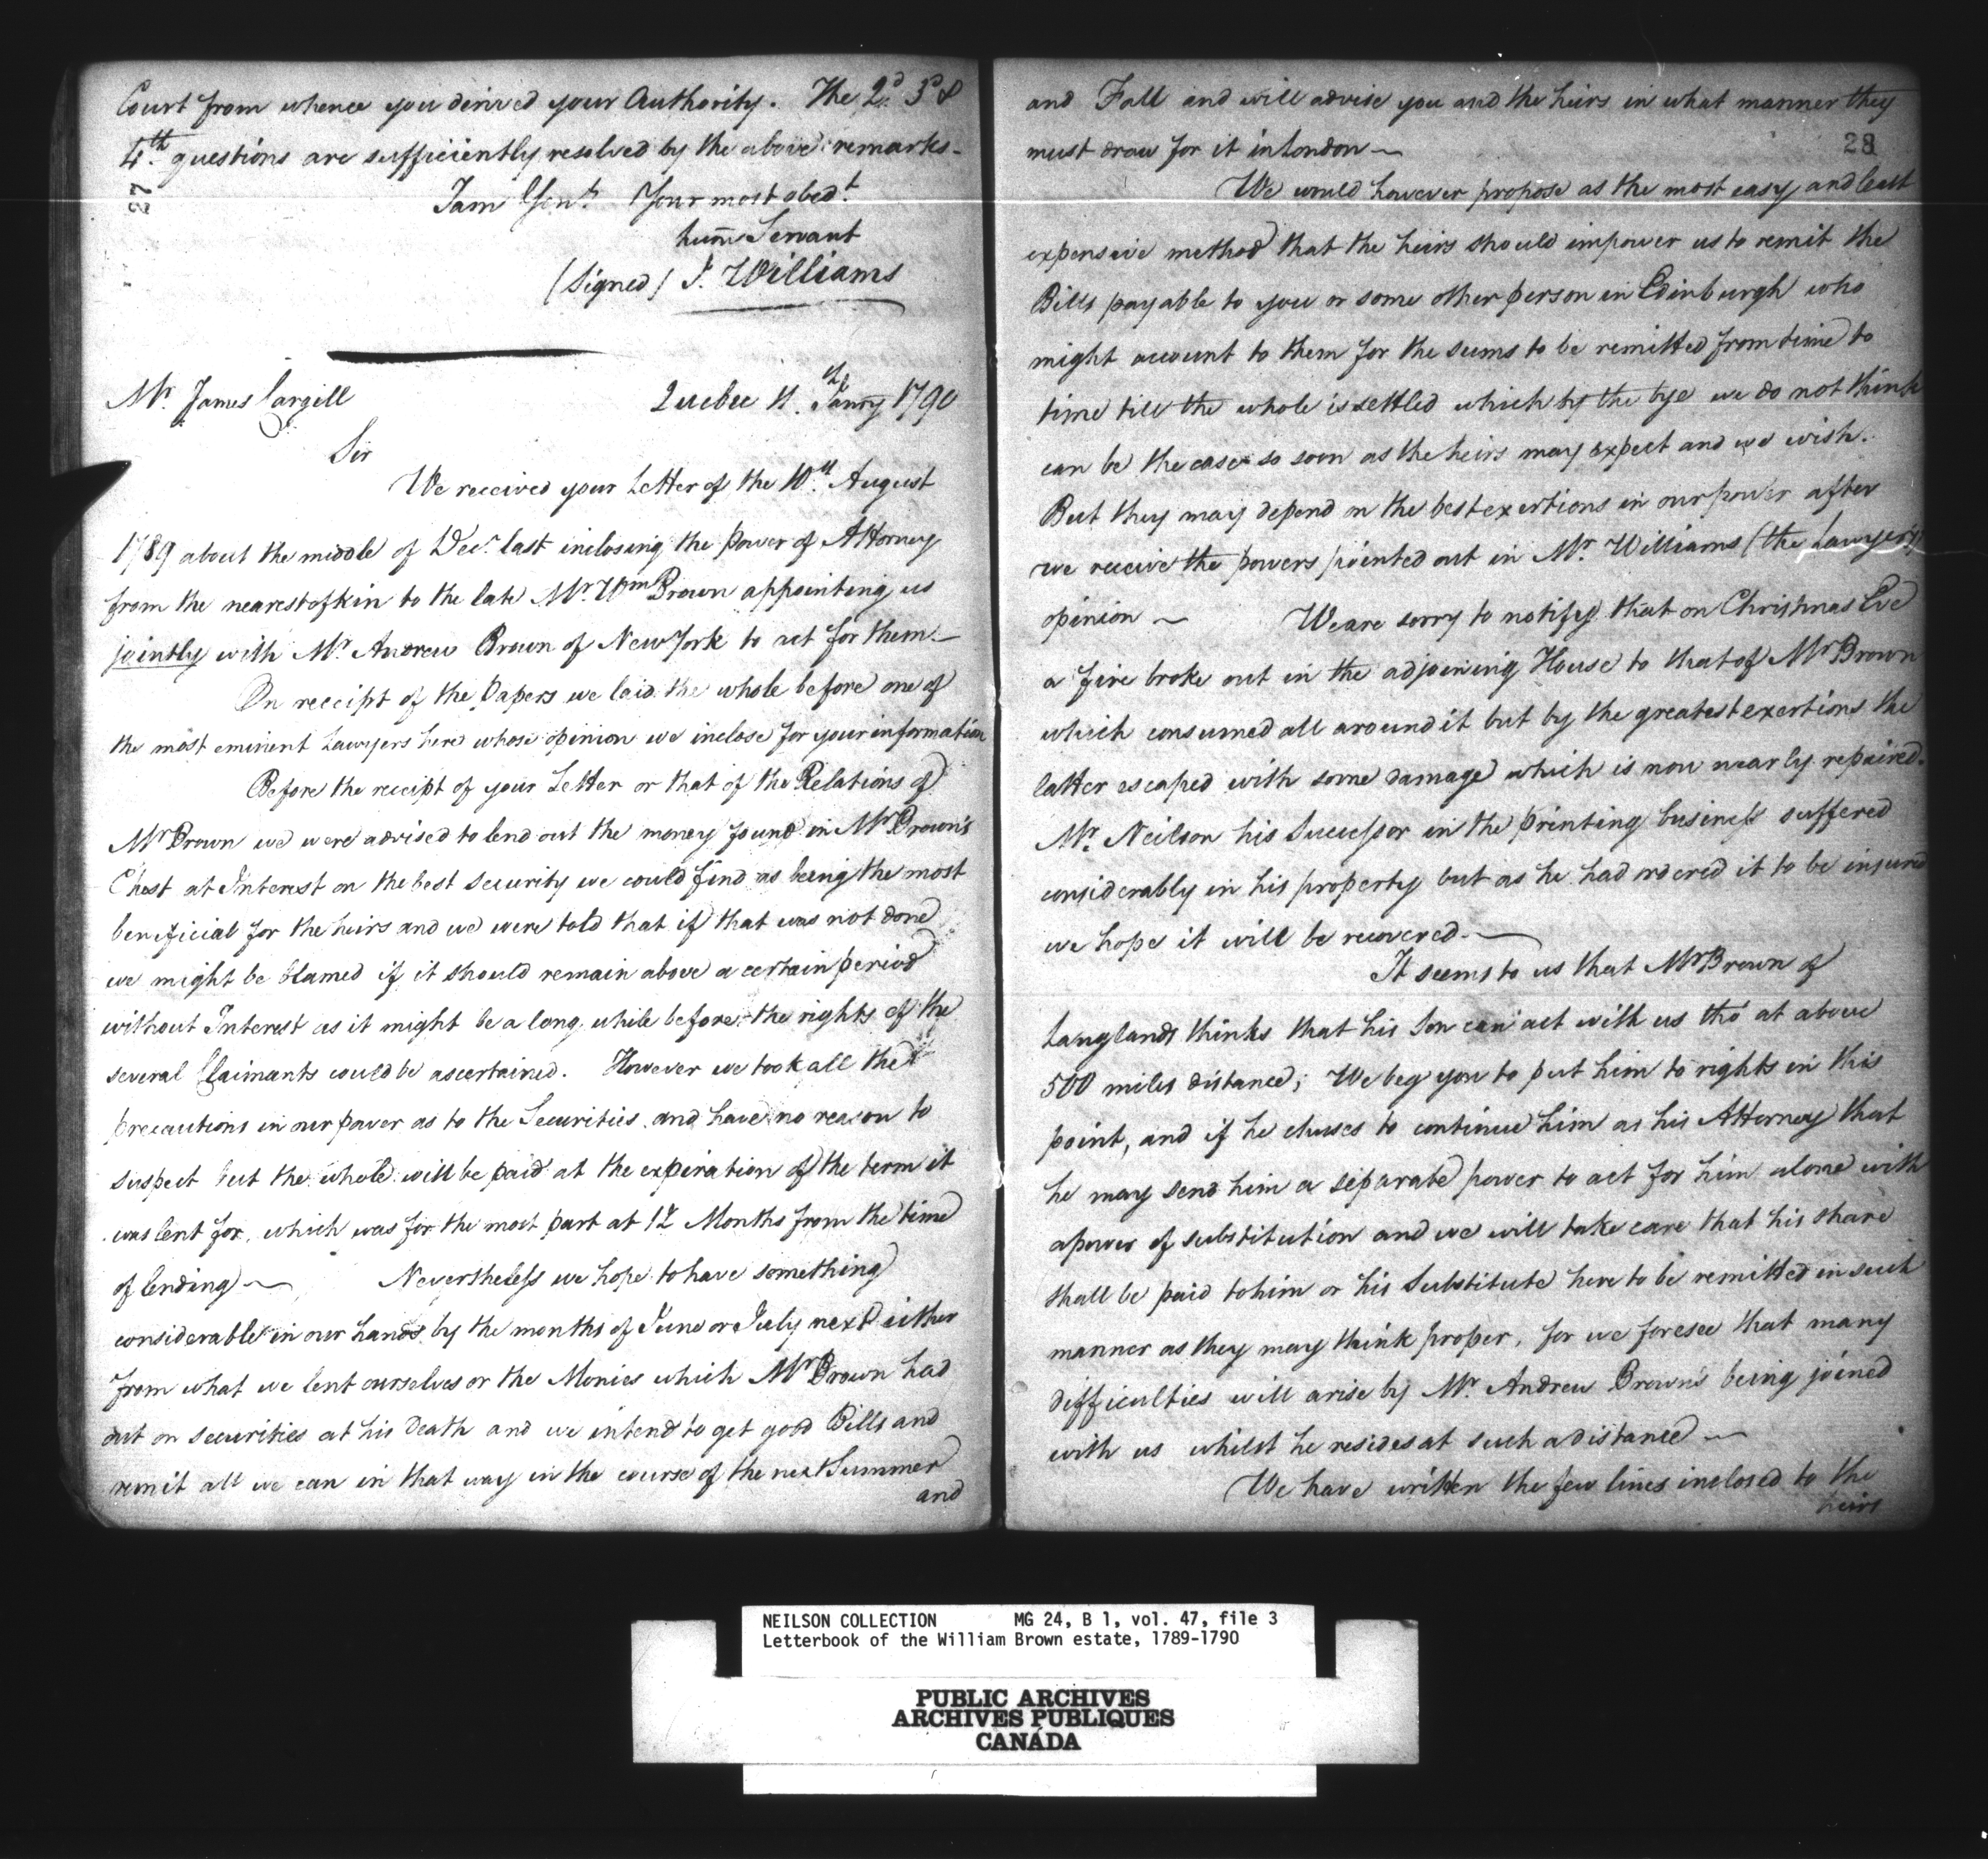 Court from whence you derived your Authority. The 2d. 3d &
4th. questions are sufficiently resolved by the above remarks -
27
I am Gent. Your most obedt.
hum Servant
(Signed) J. Williams
Mr. James Cargill Quebec 11th. Janry 1790
Sir
We received your Letter of the 10th. August
1789 about the middle of Decr. last inclosing the power of Attorney
from the nearest of kin to the late Mr. Wm Brown appointing us
jointly with Mr. Andrew Brown of New York to act for them. -
On receipt of the Papers we laid the whole before one of
the most eminent Lawyers here whose opinion we inclose for your information
Before the receipt of your Letter or that of the Relations of
Mr Brown we were advised to lend out the money found in Mr Brown's
Chest at Interest on the best security we could find as being the most
beneficial for the heirs and we were told that if that was not done
we might be blamed if it should remain above a certain period
without Interest as it might be a long while before the rights of the
several Claimants could be ascertained. However we took all the
precautions in our power as to the Securities and have no reason to
suspect but the whole will be paid at the expiration of the term it
was lent for, which was for the most part at 12 Months from the time
of lending - Nevertheless we hope to have something
considerable in our hands by the months of June or July next either
from what we lent ourselves or the Monies which Mr Brown had
out on securities at his Death and we intend to get good Bills and
remit all we can in that way in the course of the next Summer
and
and Fall and will advise you and the heirs in what manner they
must draw for it in London -
28
We would however propose as the most easy and least
expensive method that the heirs should impower us to remit the
Bills payable to you or some other person in Edinburgh who
might account to them for the sums to be remitted from time to
time till the whole is settled which by the bye we do not think
can be the case so soon as the heirs may expect and we wish.
But they may depend on the best exertions in our power after
we receive the powers pointed out in Mr. Williams (the Lawyer's)
opinion - We are sorry to notify that on Christmas Eve
a fire broke out in the adjoining House to that of Mr Brown
which consumed all around it but by the greatest exertions the
latter escaped with some damage which is now nearly repaired.
Mr. Neilson his Successor in the printing business suffered
considerably in his property but as he had ordered it to be insured
we hope it will be recovered. -
It seems to us that Mr Brown of
Langlands thinks that his Son can act with us tho' at above
500 miles distance; We beg you to put him to rights in this
point, and if he chuses to continue him as his Attorney that
he may send him a separate power to act for him alone with
a power of substitution and we will take care that his share
shall be paid to him or his Substitute here to be remitted in such
manner as they may think proper, for we foresee that many
difficulties will arise by Mr. Andrew Brown's being joined
with us whilst he resides at such a distance -
We have written the few lines inclosed to the
heirs
NEILSON COLLECTION MG 24, B 1, vol. 47, file 3
Letterbook of the William Brown estate, 1789-1790
PUBLIC ARCHIVES
ARCHIVES PUBLIQUES
CANADA